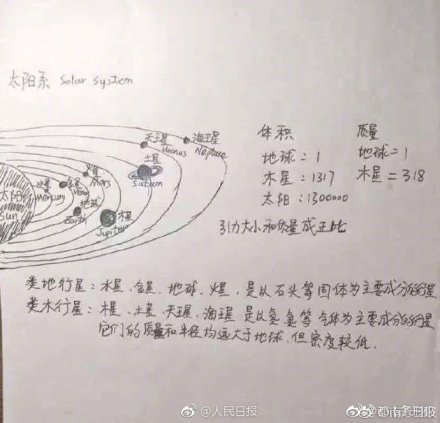 太阳系 Solar System
天王星 海王星
Uranus Neptune
土星
火星
Mars
金星
水星
Mercury
地球
Earth
木星
Jupiter
太阳
Sun
体积 质量
地球:1 地球=1
木星:1317 木星=318
太阳:1300000
引力大小和质量成正比
类地行星:水星、金星、地球、火星,是以石头等固体为主要成分的行星
类木行星:木星、土星、天王星、海王星是以氢氦等气体为主要成分的行星
它们的质量和半径均远大于地球,但密度较低.
@人民日报